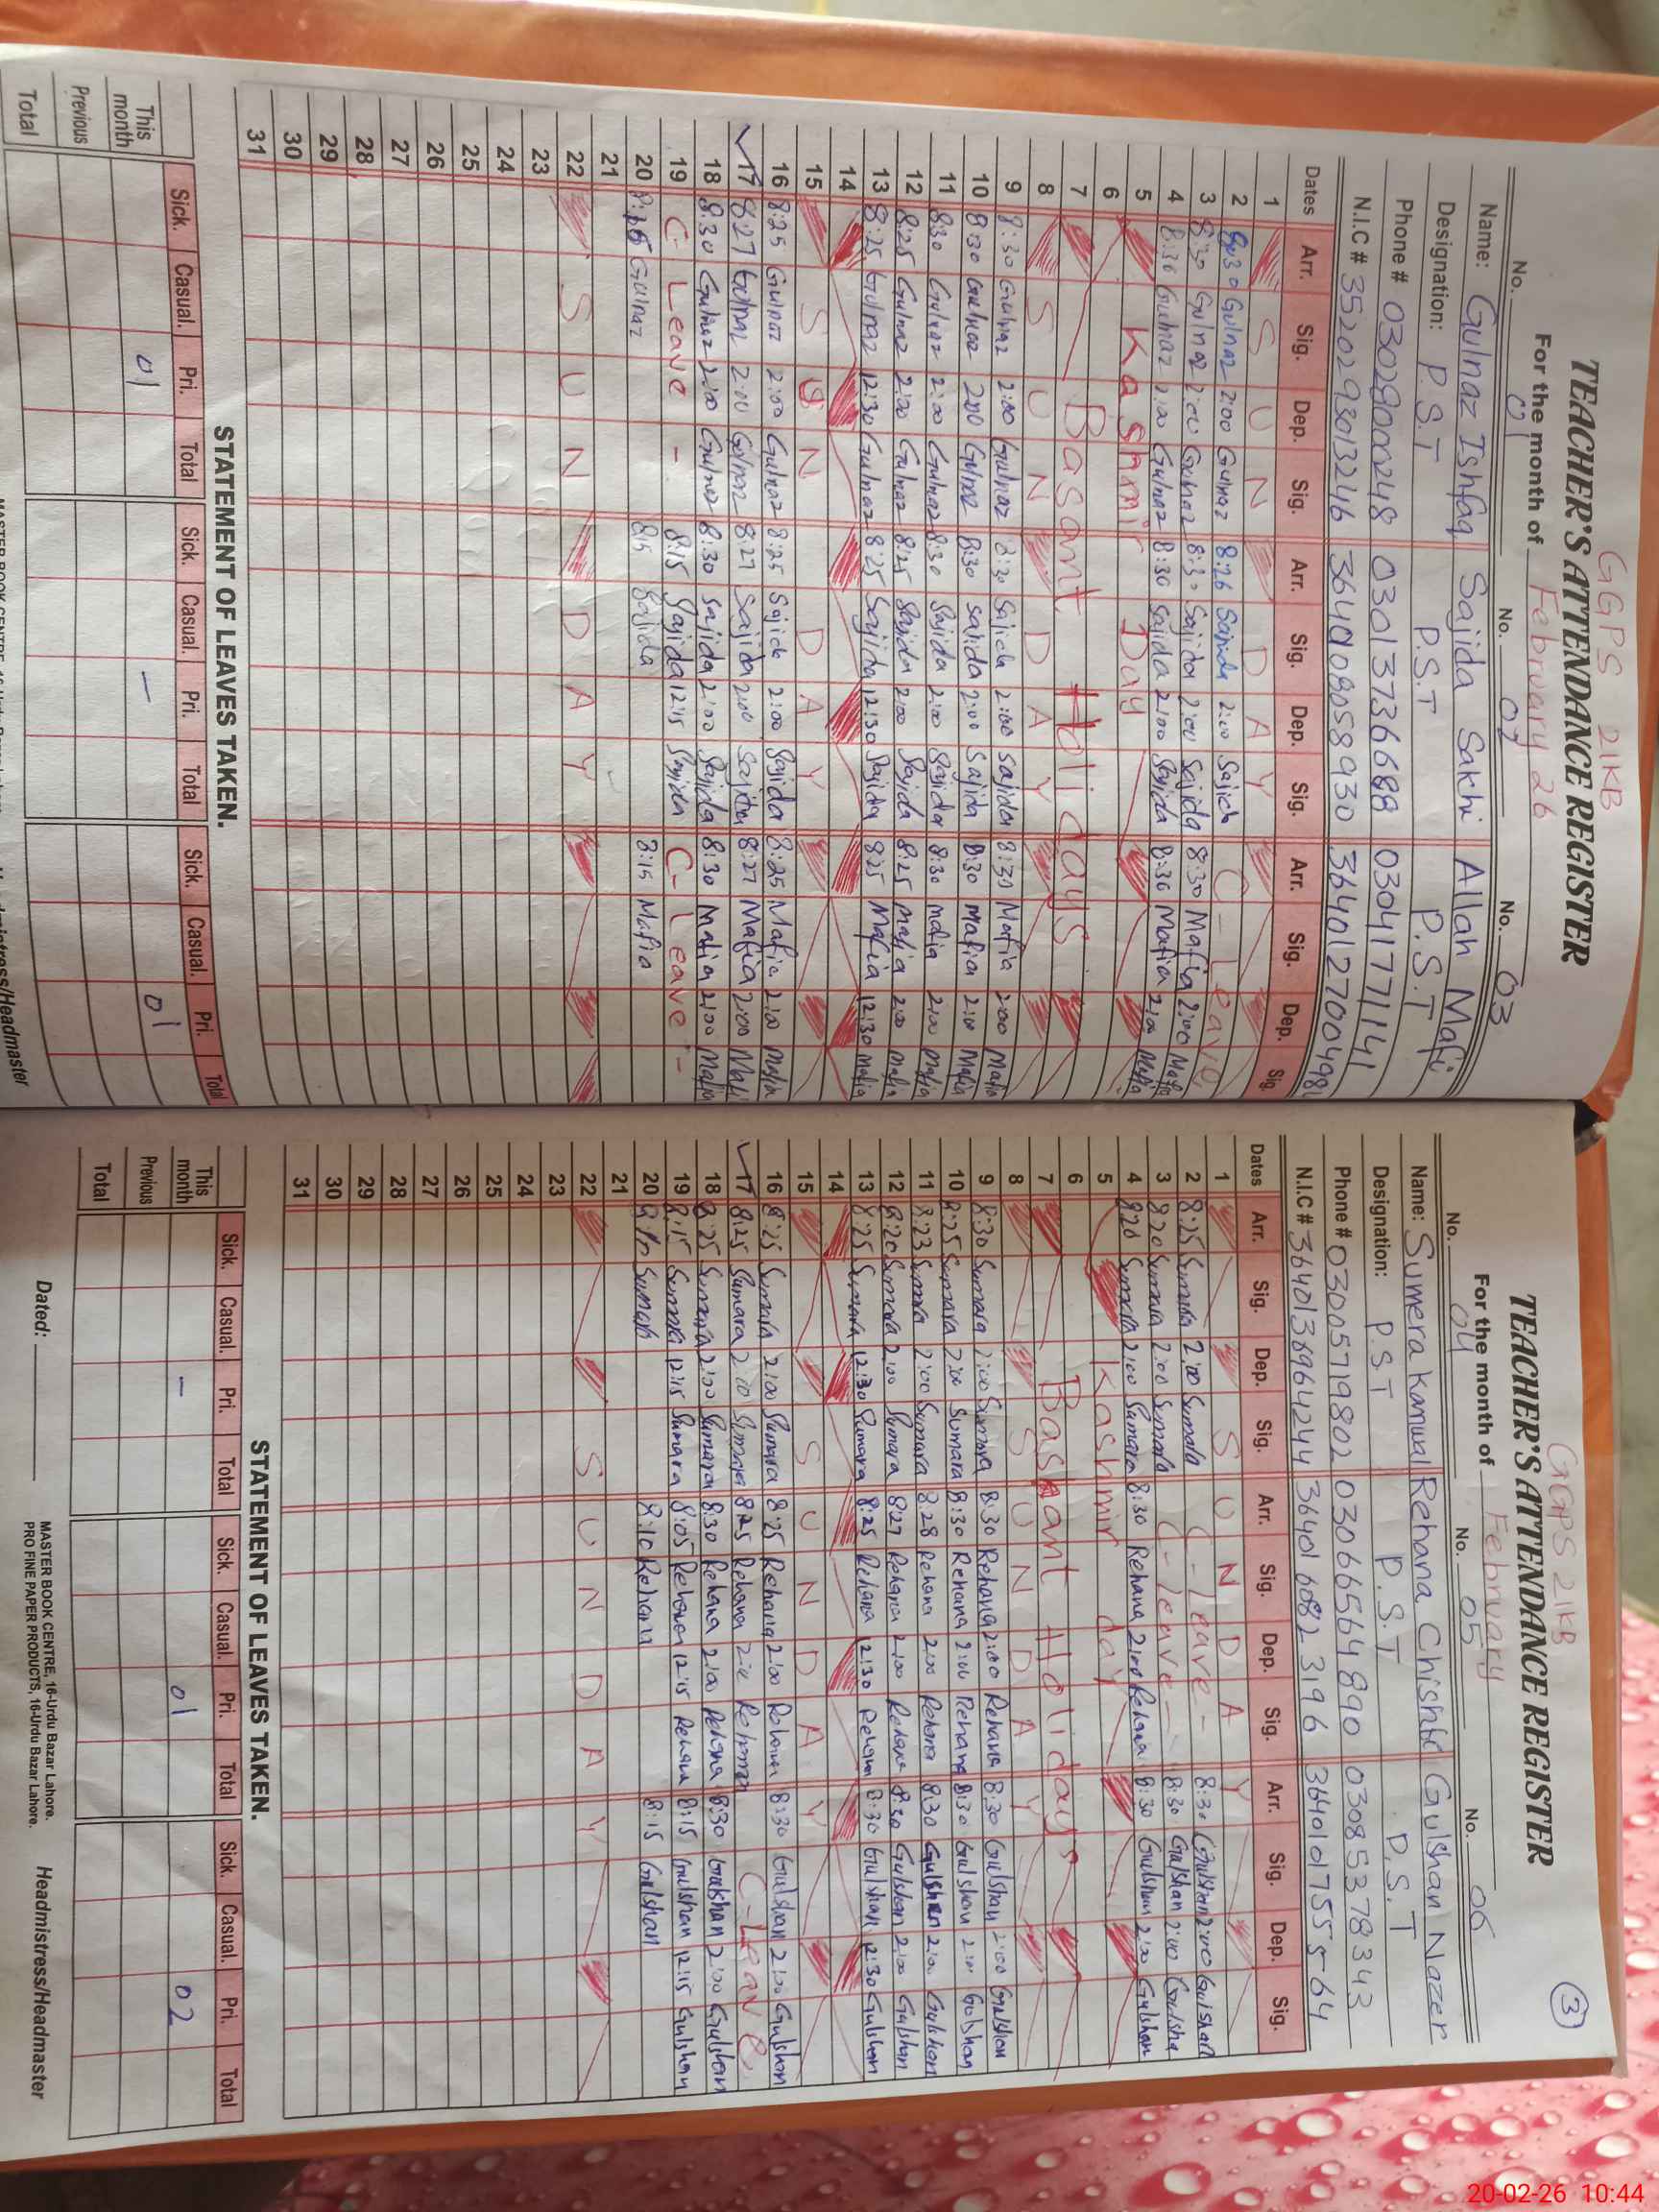 GGPS 21KB
TEACHER'S ATTENDANCE REGISTER
For the month of February 26
No. 01 No. 02 No. 03
Name: Gulnaz Ishfaq Sajida Sakhi Allah Mafi
Designation: P.S.T P.S.T P.S.T
Phone # 03013736688 03041771141
N.I.C #
Dates Arr. Sig. Dep. Sig. Arr. Sig. Dep. Sig. Arr. Sig. Dep. Sig.
1 S U N D A Y
2 Gulnaz 2:00 Gulnaz 8:26 Sajida 2:00 Sajida C-Leave
3 8:30 Gulnaz 2:00 Gulnaz 8:30 Sajida 2:00 Sajida 8:30 Mafia 2:00 Mafia
4 8:30 Gulnaz 2:00 Gulnaz 8:30 Sajida 2:00 Sajida 8:30 Mafia 2:00 Mafia
5 Kashmir Day
6
7 Basant Holidays
8 S U N D A Y
9 8:30 Gulnaz 2:00 Gulnaz 8:30 Sajida 2:00 Sajida 8:30 Mafia 2:00 Mafia
10 8:30 Gulnaz 200 Gulnaz 8:30 Sajida 2:00 Sajida 8:30 Mafia 2:00 Mafia
11 8:30 Gulnaz 2:00 Gulnaz 8:30 Sajida 2:00 Sajida 8:30 Mafia 2:00 Mafia
12 8:25 Gulnaz 2:00 Gulnaz 8:25 Sajida 2:00 Sajida 8:25 Mafia 2:00 Mafia
13 8:25 Gulnaz 12:30 Gulnaz 8:25 Sajida 12:30 Sajida 8:25 Mafia 12:30 Mafia
14
15 S U N D A Y
16 8:25 Gulnaz 2:00 Gulnaz 8:25 Sajida 2:00 Sajida 8:25 Mafia 2:00 Mafia
17 8:27 Gulnaz 2:00 Gulnaz 8:27 Sajida 2:00 Sajida 8:27 Mafia 2:00 Mafia
18 8:30 Gulnaz 2:00 Gulnaz 8:30 Sajida 2:00 Sajida 8:30 Mafia 2:00 Mafia
19 C-Leave - 8:15 Sajida 12:15 Sajida C-Leave -
20 Gulnaz 8:15 Sajida 8:15 Mafia
21
22 S U N D A Y
23
24
25
26
27
28
29
30
31
STATEMENT OF LEAVES TAKEN.
Sick. Casual. Pri. Total Sick. Casual. Pri. Total Sick. Casual. Pri. Total
This month 01 — 01
Previous
Total
GGPS 21KB
3
TEACHER'S ATTENDANCE REGISTER
For the month of February
No. 04 No. 05 No. 06
Name: Sumera Kanwal Rehana Chishti Gulshan Nazer
Designation: P.S.T P.S.T P.S.T
Phone # 03005719802 03066564890 03085378343
N.I.C # 3640136964244 3640160823196
Dates Arr. Sig. Dep. Sig. Arr. Sig. Dep. Sig. Arr. Sig. Dep. Sig.
1 S U N D A Y
2 8:25 Sumara 2:00 Sumara C-leave - 8:30 Gulshan 2:00 Gulshan
3 820 Sumara 2:00 Sumara C-leave - 8:30 Gulshan 2:00 Gulsha
4 820 Sumara 2:00 Sumara 8:30 Rehana 2:00 Rehana 8:30 Gulshan 2:00 Gulshan
5 Kashmir day
6
7 Basant Holidays
8 S U N D A Y
9 8:30 Sumara 2:00 Sumara 8:30 Rehana 2:00 Rehana 8:30 Gulshan 2:00 Gulshan
10 8:25 Sumara 2:00 Sumara 8:30 Rehana 2:00 Rehana 8:30 Gulshan 2:00 Gulshan
11 8:23 Sumara 2:00 Sumara 8:28 Rehana 2:00 Rehana 8:30 Gulshan 2:00 Gulshan
12 8:20 Sumara 2:00 Sumara 8:27 Rehana 2:00 Rehana 8:30 Gulshan 2:00 Gulshan
13 8:25 Sumara 12:30 Sumara 8:25 Rehana 12:30 Rehana 8:30 Gulshan 12:30 Gulshan
14
15 S U N D A Y
16 8:25 Sumara 2:00 Sumara 8:25 Rehana 2:00 Rehana 8:30 Gulshan 2:00 Gulshan
17 8:25 Sumara 2:00 Sumara 8:25 Rehana 2:00 Rehana C-Leave
18 8:25 Sumara 2:00 Sumara 8:30 Rehana 2:00 Rehana 8:30 Gulshan 2:00 Gulshan
19 8:15 Sumara 12:15 Sumara 8:05 Rehana 12:15 Rehana 8:15 Gulshan 12:15 Gulshan
20 Sumara 8:10 Rehana 8:15 Gulshan
21
22 S U N D A Y
23
24
25
26
27
28
29
30
31
STATEMENT OF LEAVES TAKEN.
Sick. Casual. Pri. Total Sick. Casual. Pri Total Sick. Casual. Pri. Total
This month — 01 02
Previous
Total
MASTER BOOK CENTRE, 16-Urdu Bazar Lahore.
PRO FINE PAPER PRODUCTS, 16-Urdu Bazar Lahore.
Dated: Headmistress/Headmaster
20-02-26 10:44